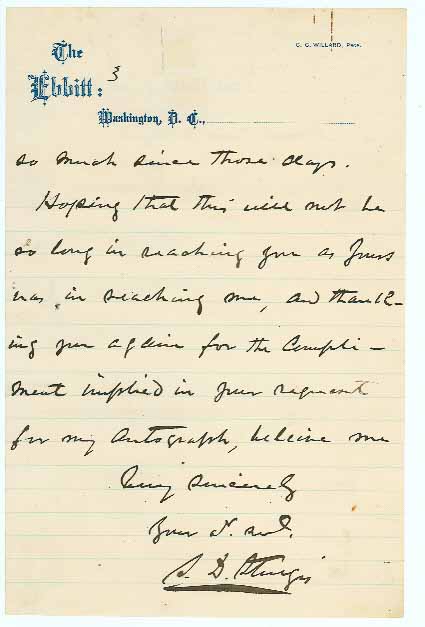 The
Ebbitt:
3
C. C. WILLARD, Prop.
Washington, D. C.,
so much since those days.
Hoping that this will not be
so long in reaching you as yours
was in reaching me, and thank-
ing you again for the compli-
ment implied in your request
for my autograph, believe me
Very sincerely
Your
S. D. Sturgis